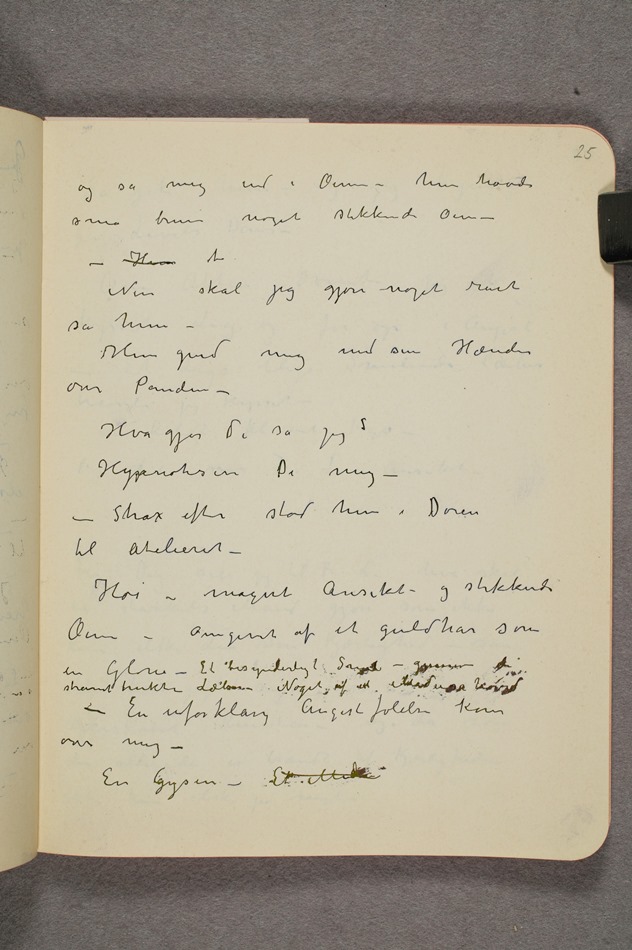 25
og så mig ind i Øinene – hun havde
små brune noget stikkende Øine –
– Hun
Nu skal jeg gjøre noget rart
sa hun –
Hun gned mig med sin Hænder
over Panden –
Hva gjør De sa jeg?
Hypnotiserer De mig –
– Strax efter stod hun i Døren
til atelieret –
Høi – magert Ansikt – og stikkende
Øine – omgivet af et guldhår som
en Glorie – Et besynderligt Smil – gjennem de
stramt trukne Læber Noget af et
– En uforklarlig Angestfølelse kom
over mig –
En Gysen – Et